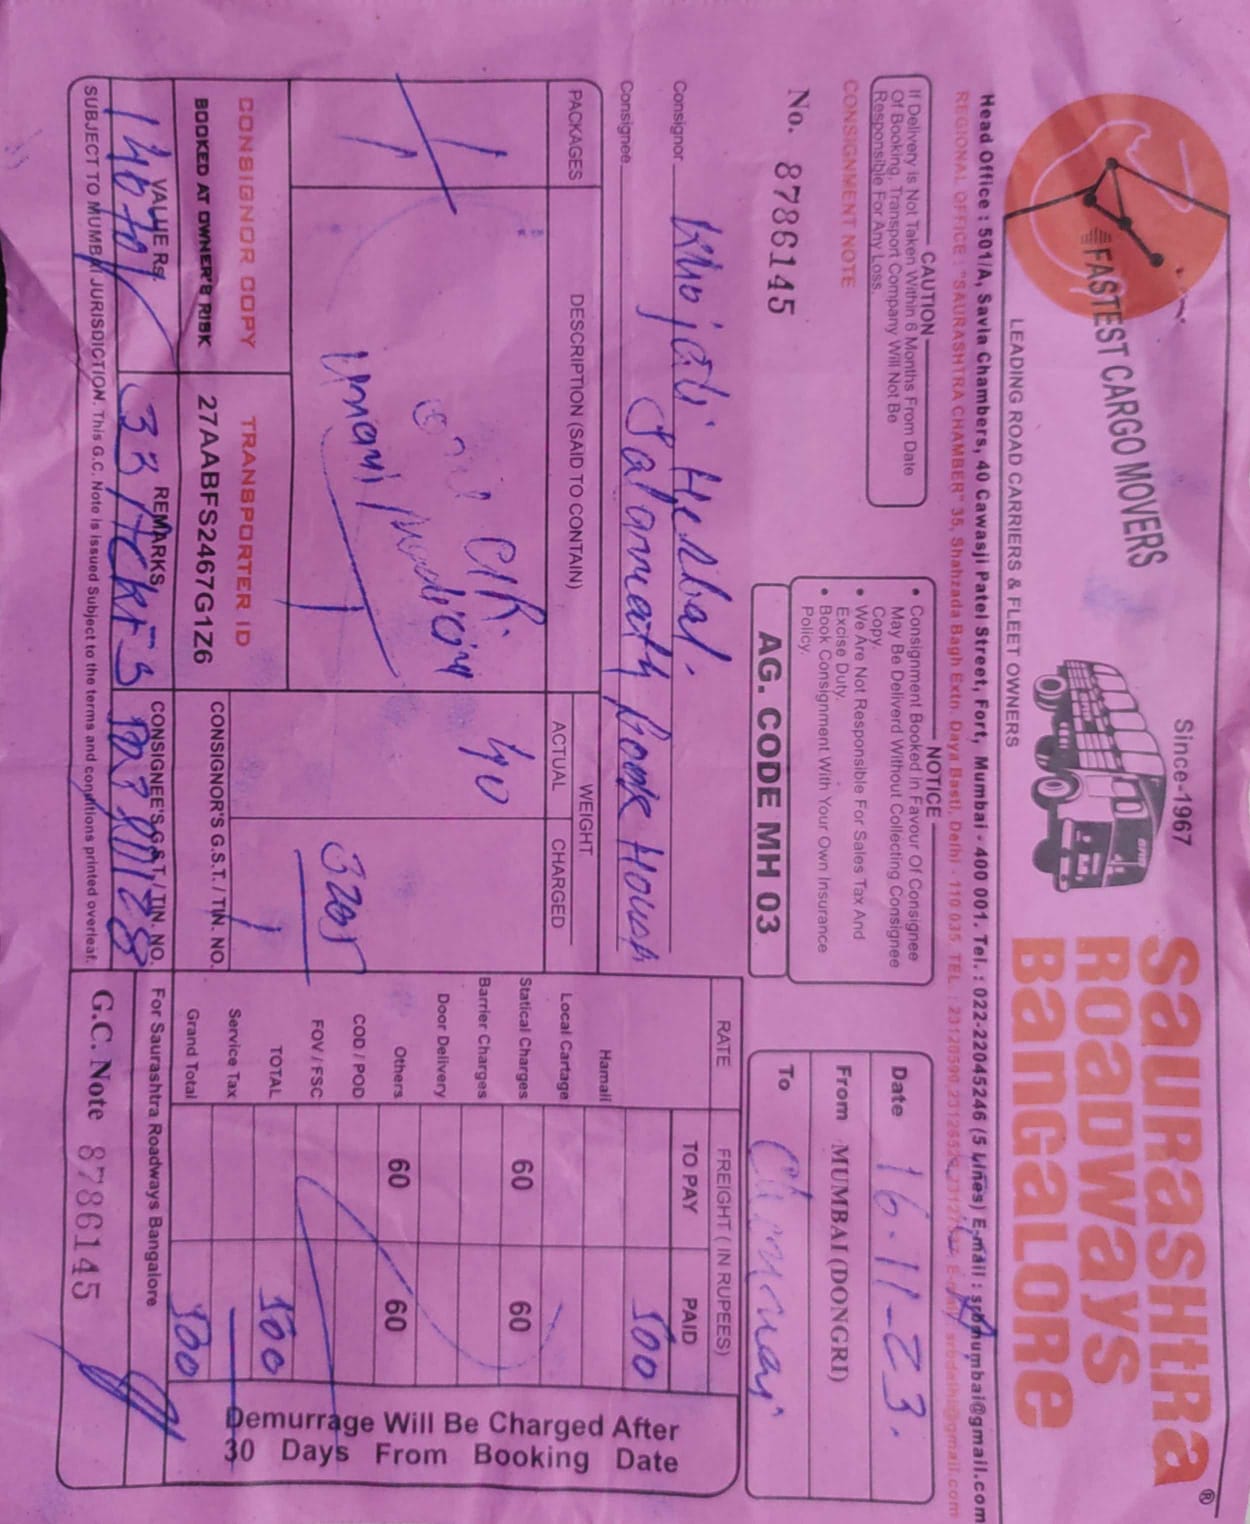 FASTEST CARGO MOVERS
Since-1967
SAURASHTRA ®
ROADWAYS
BANGALORE
LEADING ROAD CARRIERS & FLEET OWNERS
Head Office : 501/A, Savla Chambers, 40 Cawasji Patel Street, Fort, Mumbai - 400 001. Tel. : 022-22045246 (5 Lines) E-mail : srbmumbai@gmail.com
REGIONAL OFFICE : "SAURASHTRA CHAMBER" 35, Shahzada Bagh Extn. Daya Basti, Delhi - 110 035 TEL. : 23120590
CAUTION
If Delivery is Not Taken Within 6 Months From Date
Of Booking, Transport Company Will Not Be
Responsible For Any Loss.
CONSIGNMENT NOTE
No. 8786145
NOTICE
• Consignment Booked in Favour Of Consignee
May Be Deliverd Without Collecting Consignee
Copy.
• We Are Not Responsible For Sales Tax And
Excise Duty.
• Book Consignment With Your Own Insurance
Policy.
AG. CODE MH 03
Date 16-11-23.
From MUMBAI (DONGRI)
To
Consignor Khojati Herbal.
Consignee Salamath Book House
PACKAGES
DESCRIPTION (SAID TO CONTAIN)
WEIGHT
ACTUAL
CHARGED
RATE
FREIGHT ( IN RUPEES)
TO PAY
PAID
1
C/R.
Unani
40
320/
500
Hamali
Local Cartage
Statical Charges 60 60
Barrier Charges
Door Delivery
Others 60 60
COD / POD
FOV / FSC
TOTAL 500
Service Tax
Grand Total 500
CONSIGNOR COPY
BOOKED AT OWNER'S RISK
TRANSPORTER ID
27AABFS2467G1Z6
CONSIGNOR'S G.S.T. / TIN. NO.
VALUE Rs.
REMARKS
CONSIGNEE'S G.S.T. / TIN. NO.
SUBJECT TO MUMBAI JURISDICTION. This G.C. Note is issued Subject to the terms and conditions printed overleaf.
Demurrage Will Be Charged After
30 Days From Booking Date
For Saurashtra Roadways Bangalore
G.C. Note 8786145